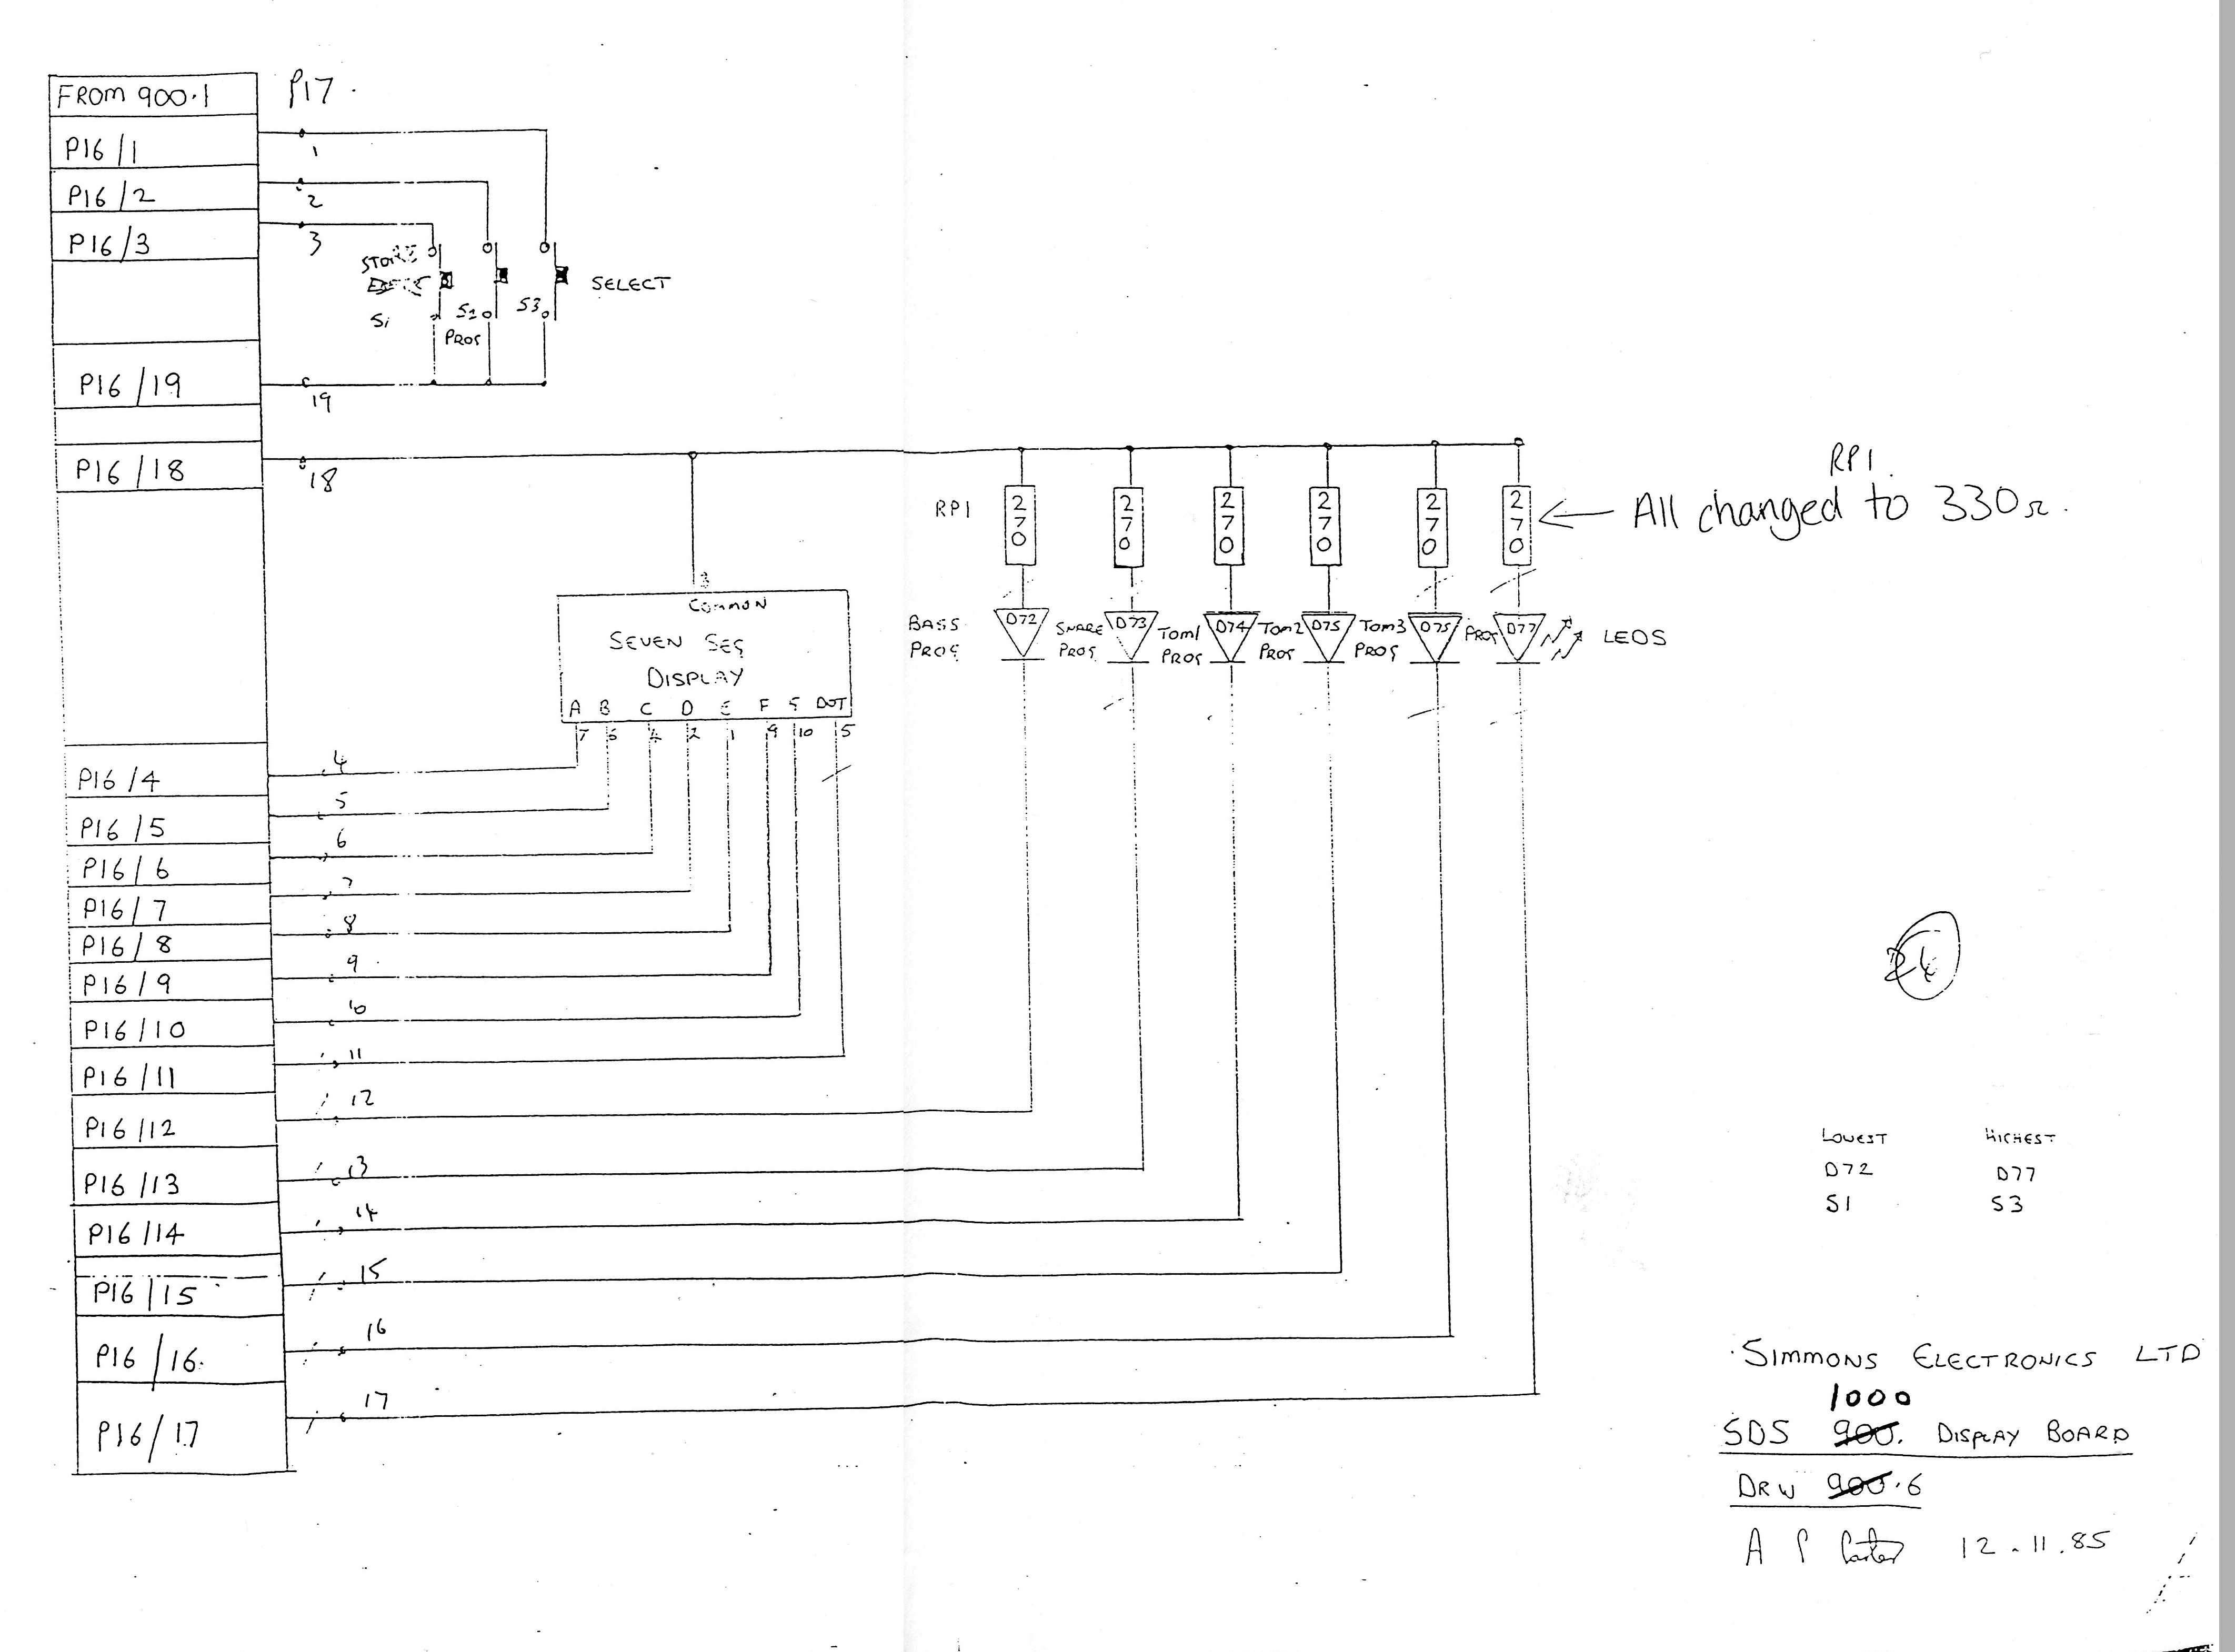 FROM 900.1
P17
P16/1
1
P16/2
2
P16/3
3
STORE
S1
S2
PROG
S3
SELECT
P16/19
19
P16/18
18
RP1
270
270
270
270
270
270
RP1
All changed to 330Ω.
3
COMMON
SEVEN SEG
DISPLAY
A B C D E F G DOT
7 6 4 2 1 9 10 5
BASS
PROG
D72
SNARE
PROG
D73
TOM1
PROG
D74
TOM2
PROG
D75
TOM3
PROG
D75
PROG
D77
LEDS
P16/4
4
P16/5
5
P16/6
6
P16/7
7
P16/8
8
P16/9
9
P16/10
10
P16/11
11
P16/12
12
P16/13
13
P16/14
14
P16/15
15
P16/16.
16
P16/17
17
LOWEST HIGHEST
D72 D77
S1 S3
SIMMONS ELECTRONICS LTD
1000
SDS 900. DISPLAY BOARD
DRW 900.6
A P
12.11.85